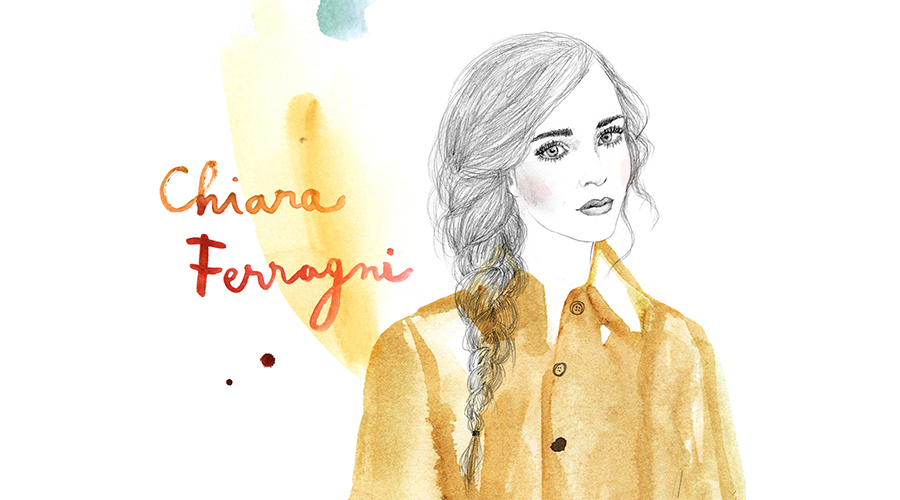 Chiara
Ferragni